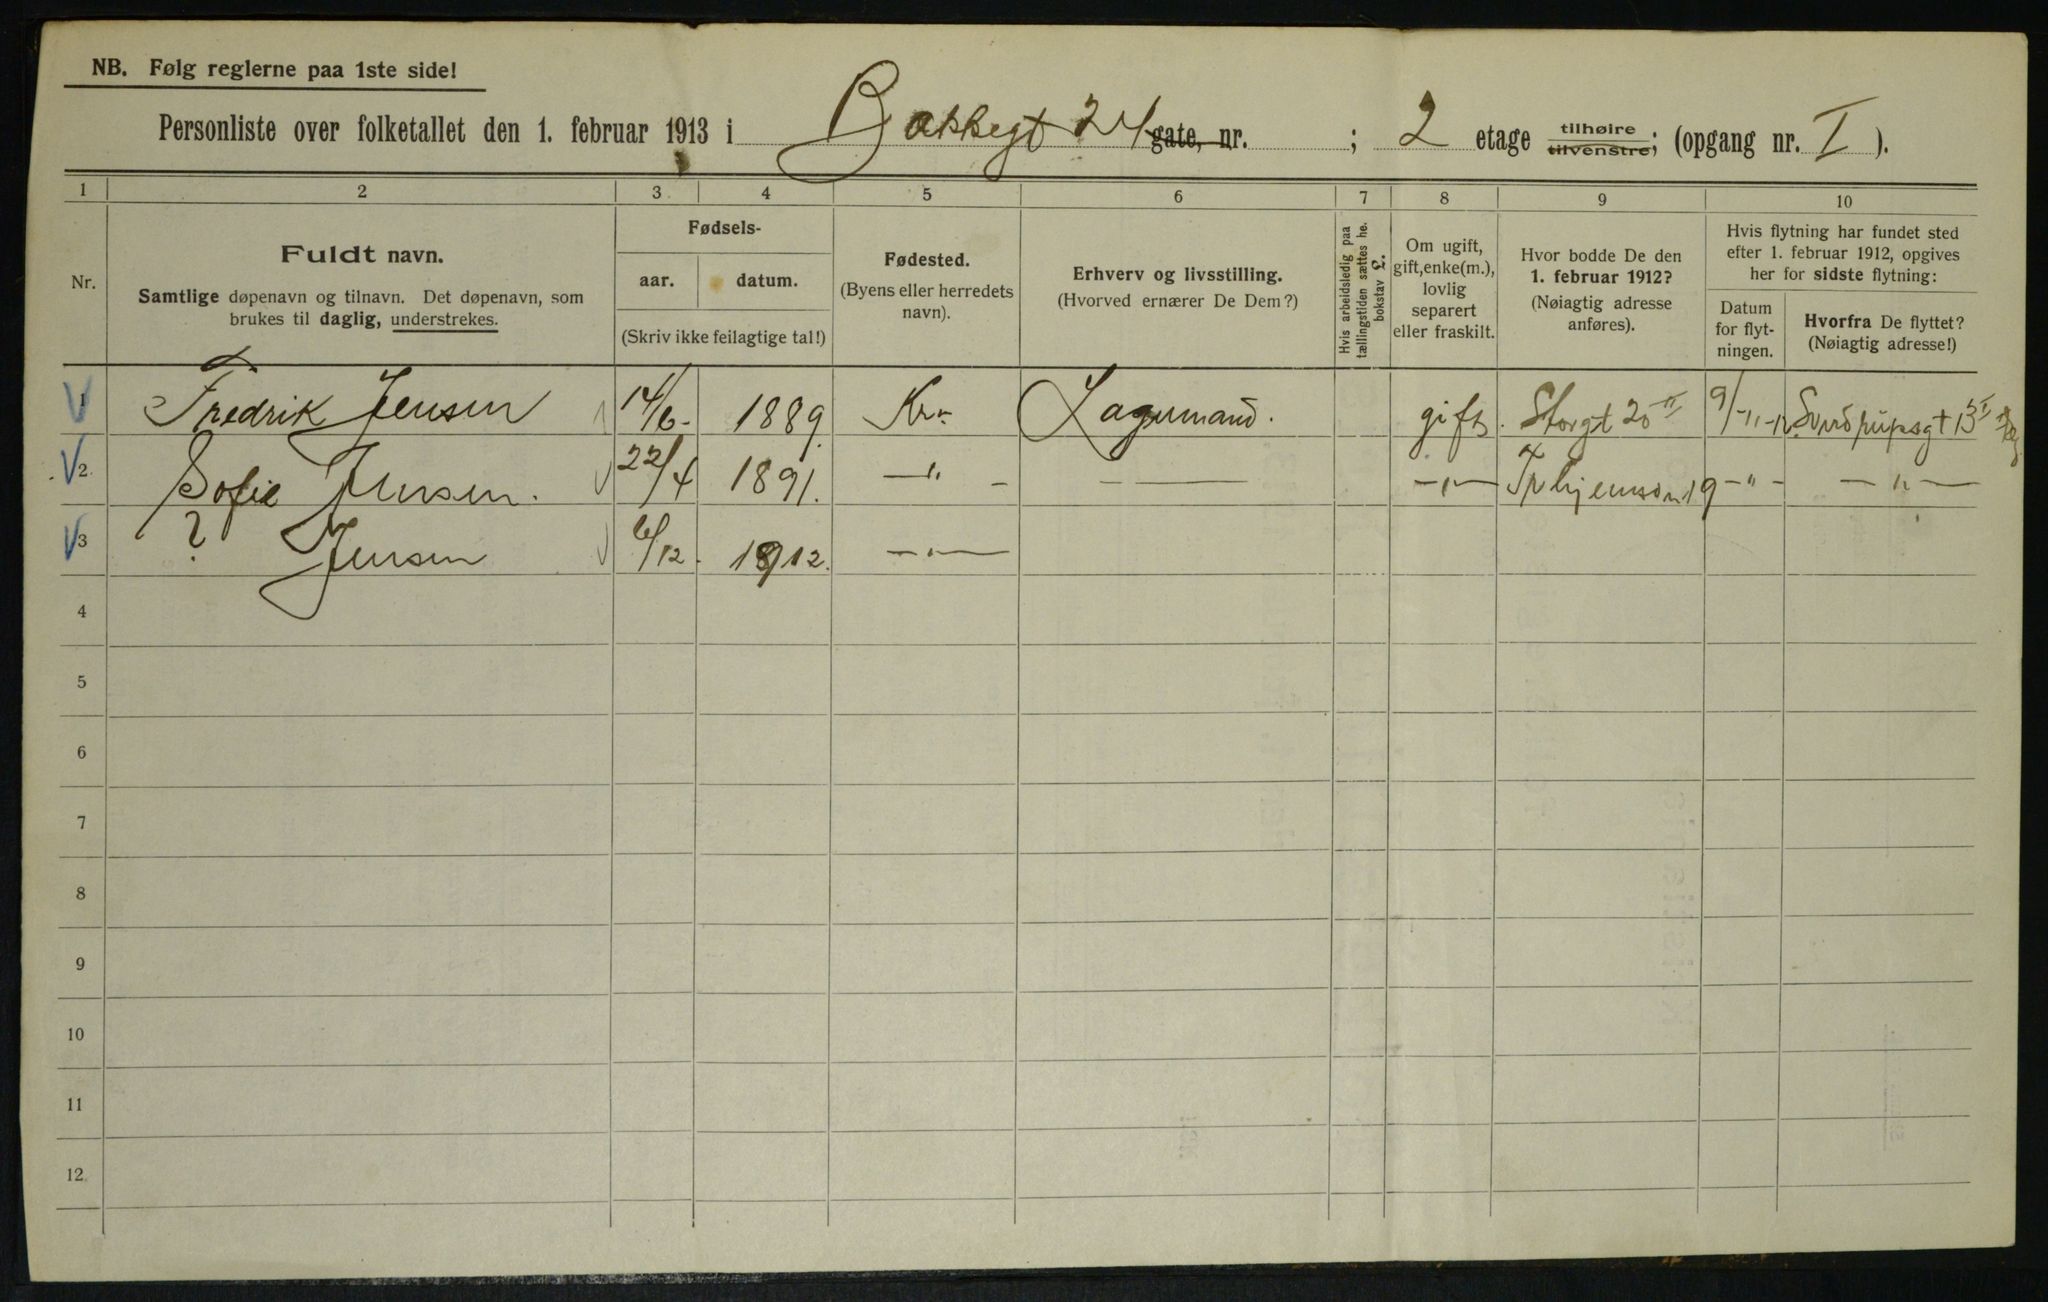 NB. Følg reglerne paa 1ste side!
Personliste over folketallet den 1. februar 1913 i Bakkegt 24 gate, nr. ; 2 etage tilhøire tilvenstre; (opgang nr. I ).
1 2 3 4 5 6 7 8 9 10
Nr.
Fuldt navn.
Samtlige døpenavn og tilnavn. Det døpenavn, som
brukes til daglig, understrekes.
Fødsels-
aar. datum.
(Skriv ikke feilagtige tal!)
Fødested.
(Byens eller herredets
navn).
Erhverv og livsstilling.
(Hvorved ernærer De Dem?)
Hvis arbeidsledig paa
tællingstiden sættes he.
bokstav L.
Om ugift,
gift, enke(m.),
lovlig
separert
eller fraskilt.
Hvor bodde De den
1. februar 1912?
(Nøiagtig adresse
anføres).
Hvis flytning har fundet sted
efter 1. februar 1912, opgives
her for sidste flytning:
Datum
for flyt-
ningen.
Hvorfra De flyttet?
(Nøiagtig adresse!)
1 Fredrik Jensen 14/6- 1889 Kr. Lagermand. gift. Storgt 20 II 9/-11-12 Sverdrupsgt 13 I
2 Sofie Jensen. 22/4 1891. —"— - —— —"— 19 -"- —"—
3 ? Jensen 6/12. 1912. —"—
4
5
6
7
8
9
10
11
12